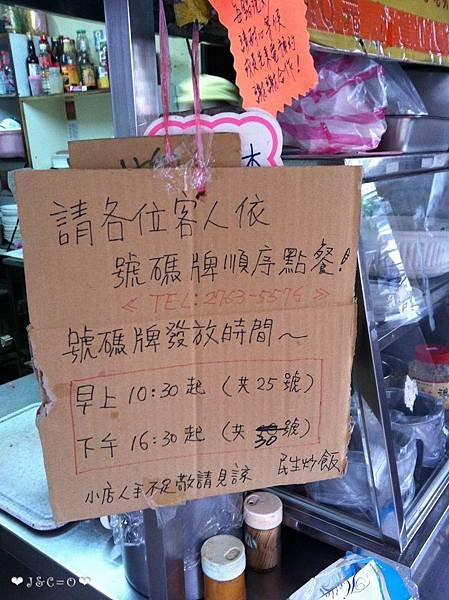 請各位客人依
號碼牌順序點餐!
《 TEL:2763-5576 》
號碼牌發放時間～
早上 10:30 起 (共 25 號)
下午 16:30 起 (共 30 號)
小店人手不足敬請見諒 民生炒飯
❤ J&C=O ❤